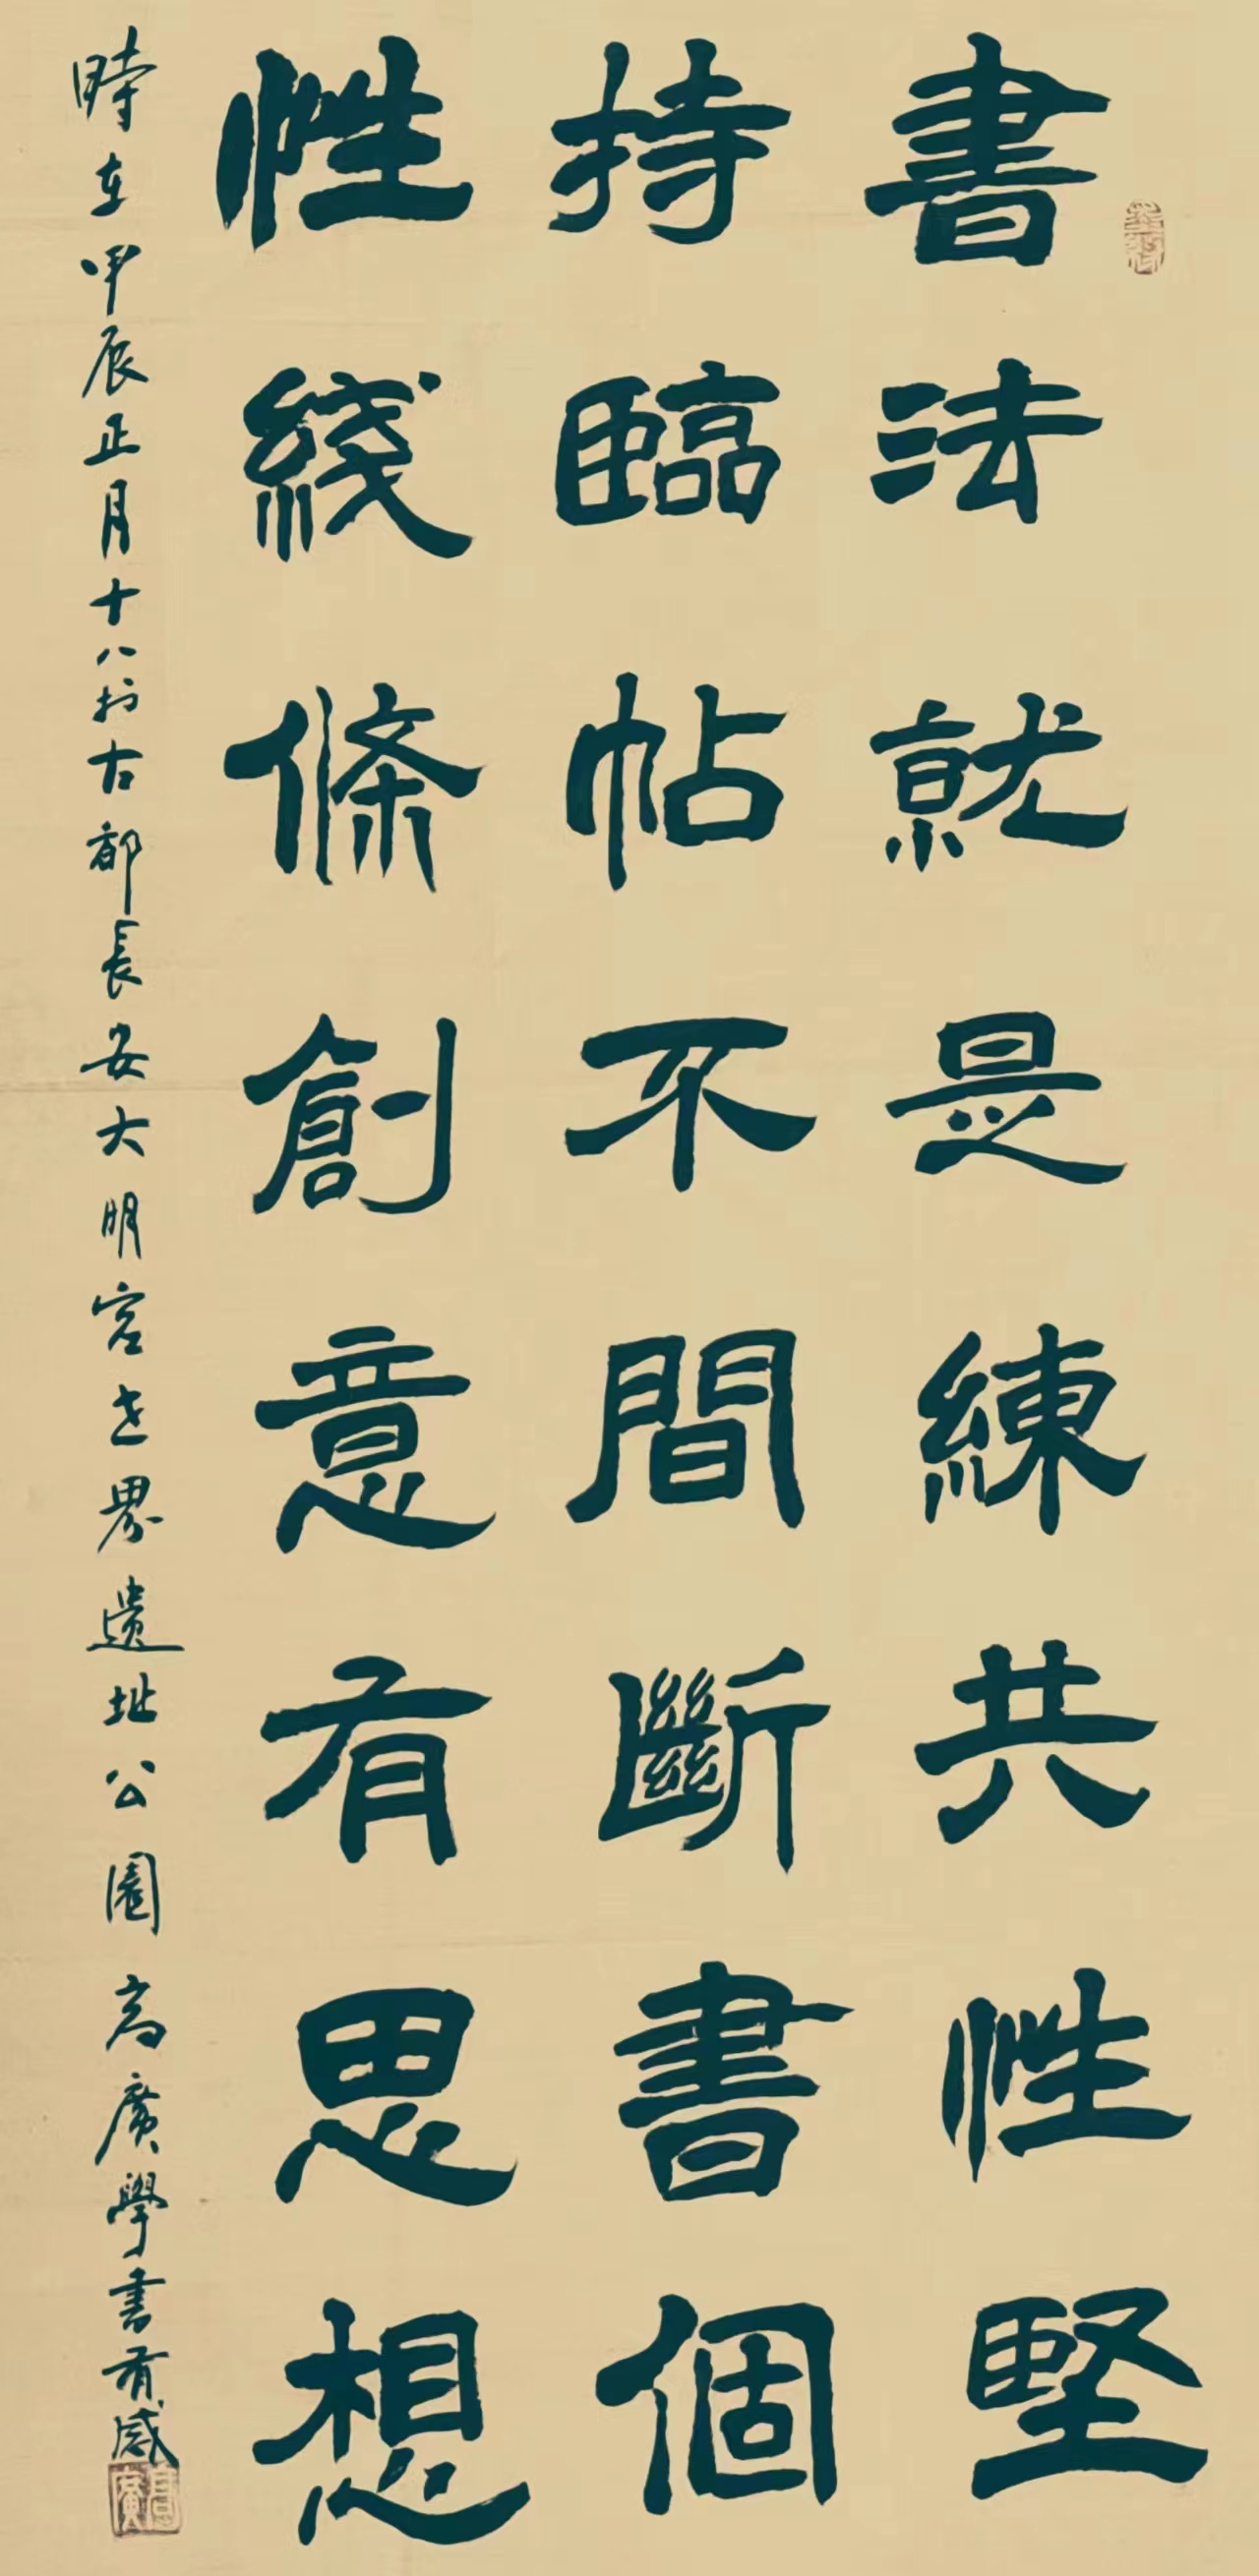 書法就是練共性堅
持臨帖不間斷書個
性綫條創意有思想
時在甲辰正月十八於古都長安大明宮世界遺址公園高廣學書有感
高廣